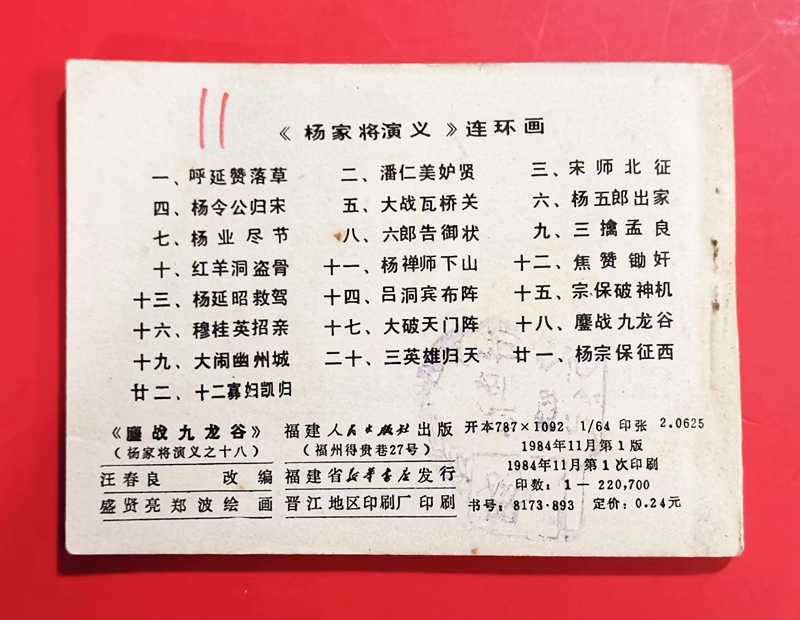 11
《杨家将演义》连环画
一、呼延赞落草 二、潘仁美妒贤 三、宋师北征
四、杨令公归宋 五、大战瓦桥关 六、杨五郎出家
七、杨业尽节 八、六郎告御状 九、三擒孟良
十、红羊洞盗骨 十一、杨禅师下山 十二、焦赞锄奸
十三、杨延昭救驾 十四、吕洞宾布阵 十五、宗保破神机
十六、穆桂英招亲 十七、大破天门阵 十八、鏖战九龙谷
十九、大闹幽州城 二十、三英雄归天 廿一、杨宗保征西
廿二、十二寡妇凯归
《鏖战九龙谷》
(杨家将演义之十八)
汪春良 改编
盛贤亮郑波绘画
福建人民出版社出版
(福州得贵巷27号)
福建省新华书店发行
晋江地区印刷厂印刷
开本787×1092 1/64 印张 2.0625
1984年11月第1版
1984年11月第1次印刷
印数：1—220,700
书号：8173·893 定价：0.24元